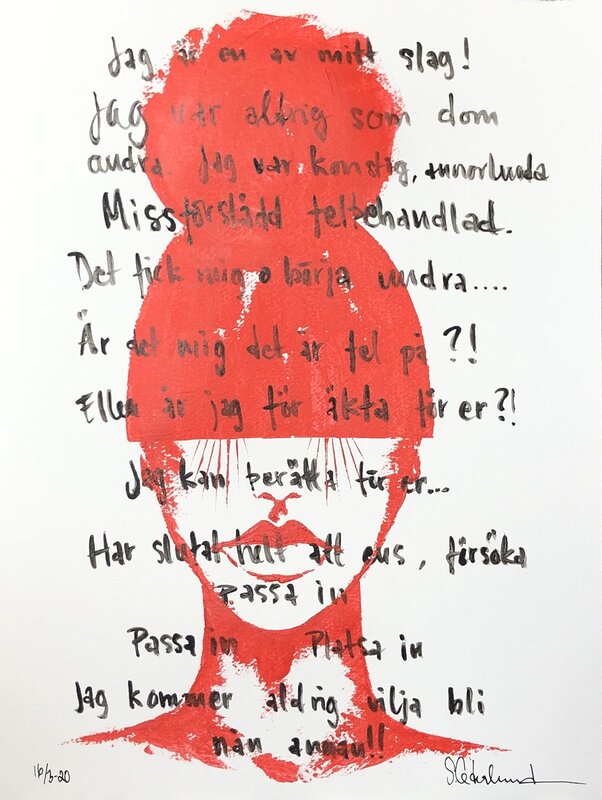 Jag är en av mitt slag!
Jag var aldrig som dom
andra. Jag var konstig, annorlunda
Missförstådd felbehandlad.
Det fick mig o börja undra....
Är det mig det är fel på ?!
Eller är jag för äkta för er?!
Jag kan berätta för er...
Har slutat helt att ens, försöka
Passa in
Passa in Platsa in
Jag kommer aldrig vilja bli
nån annan!!
16/3-20